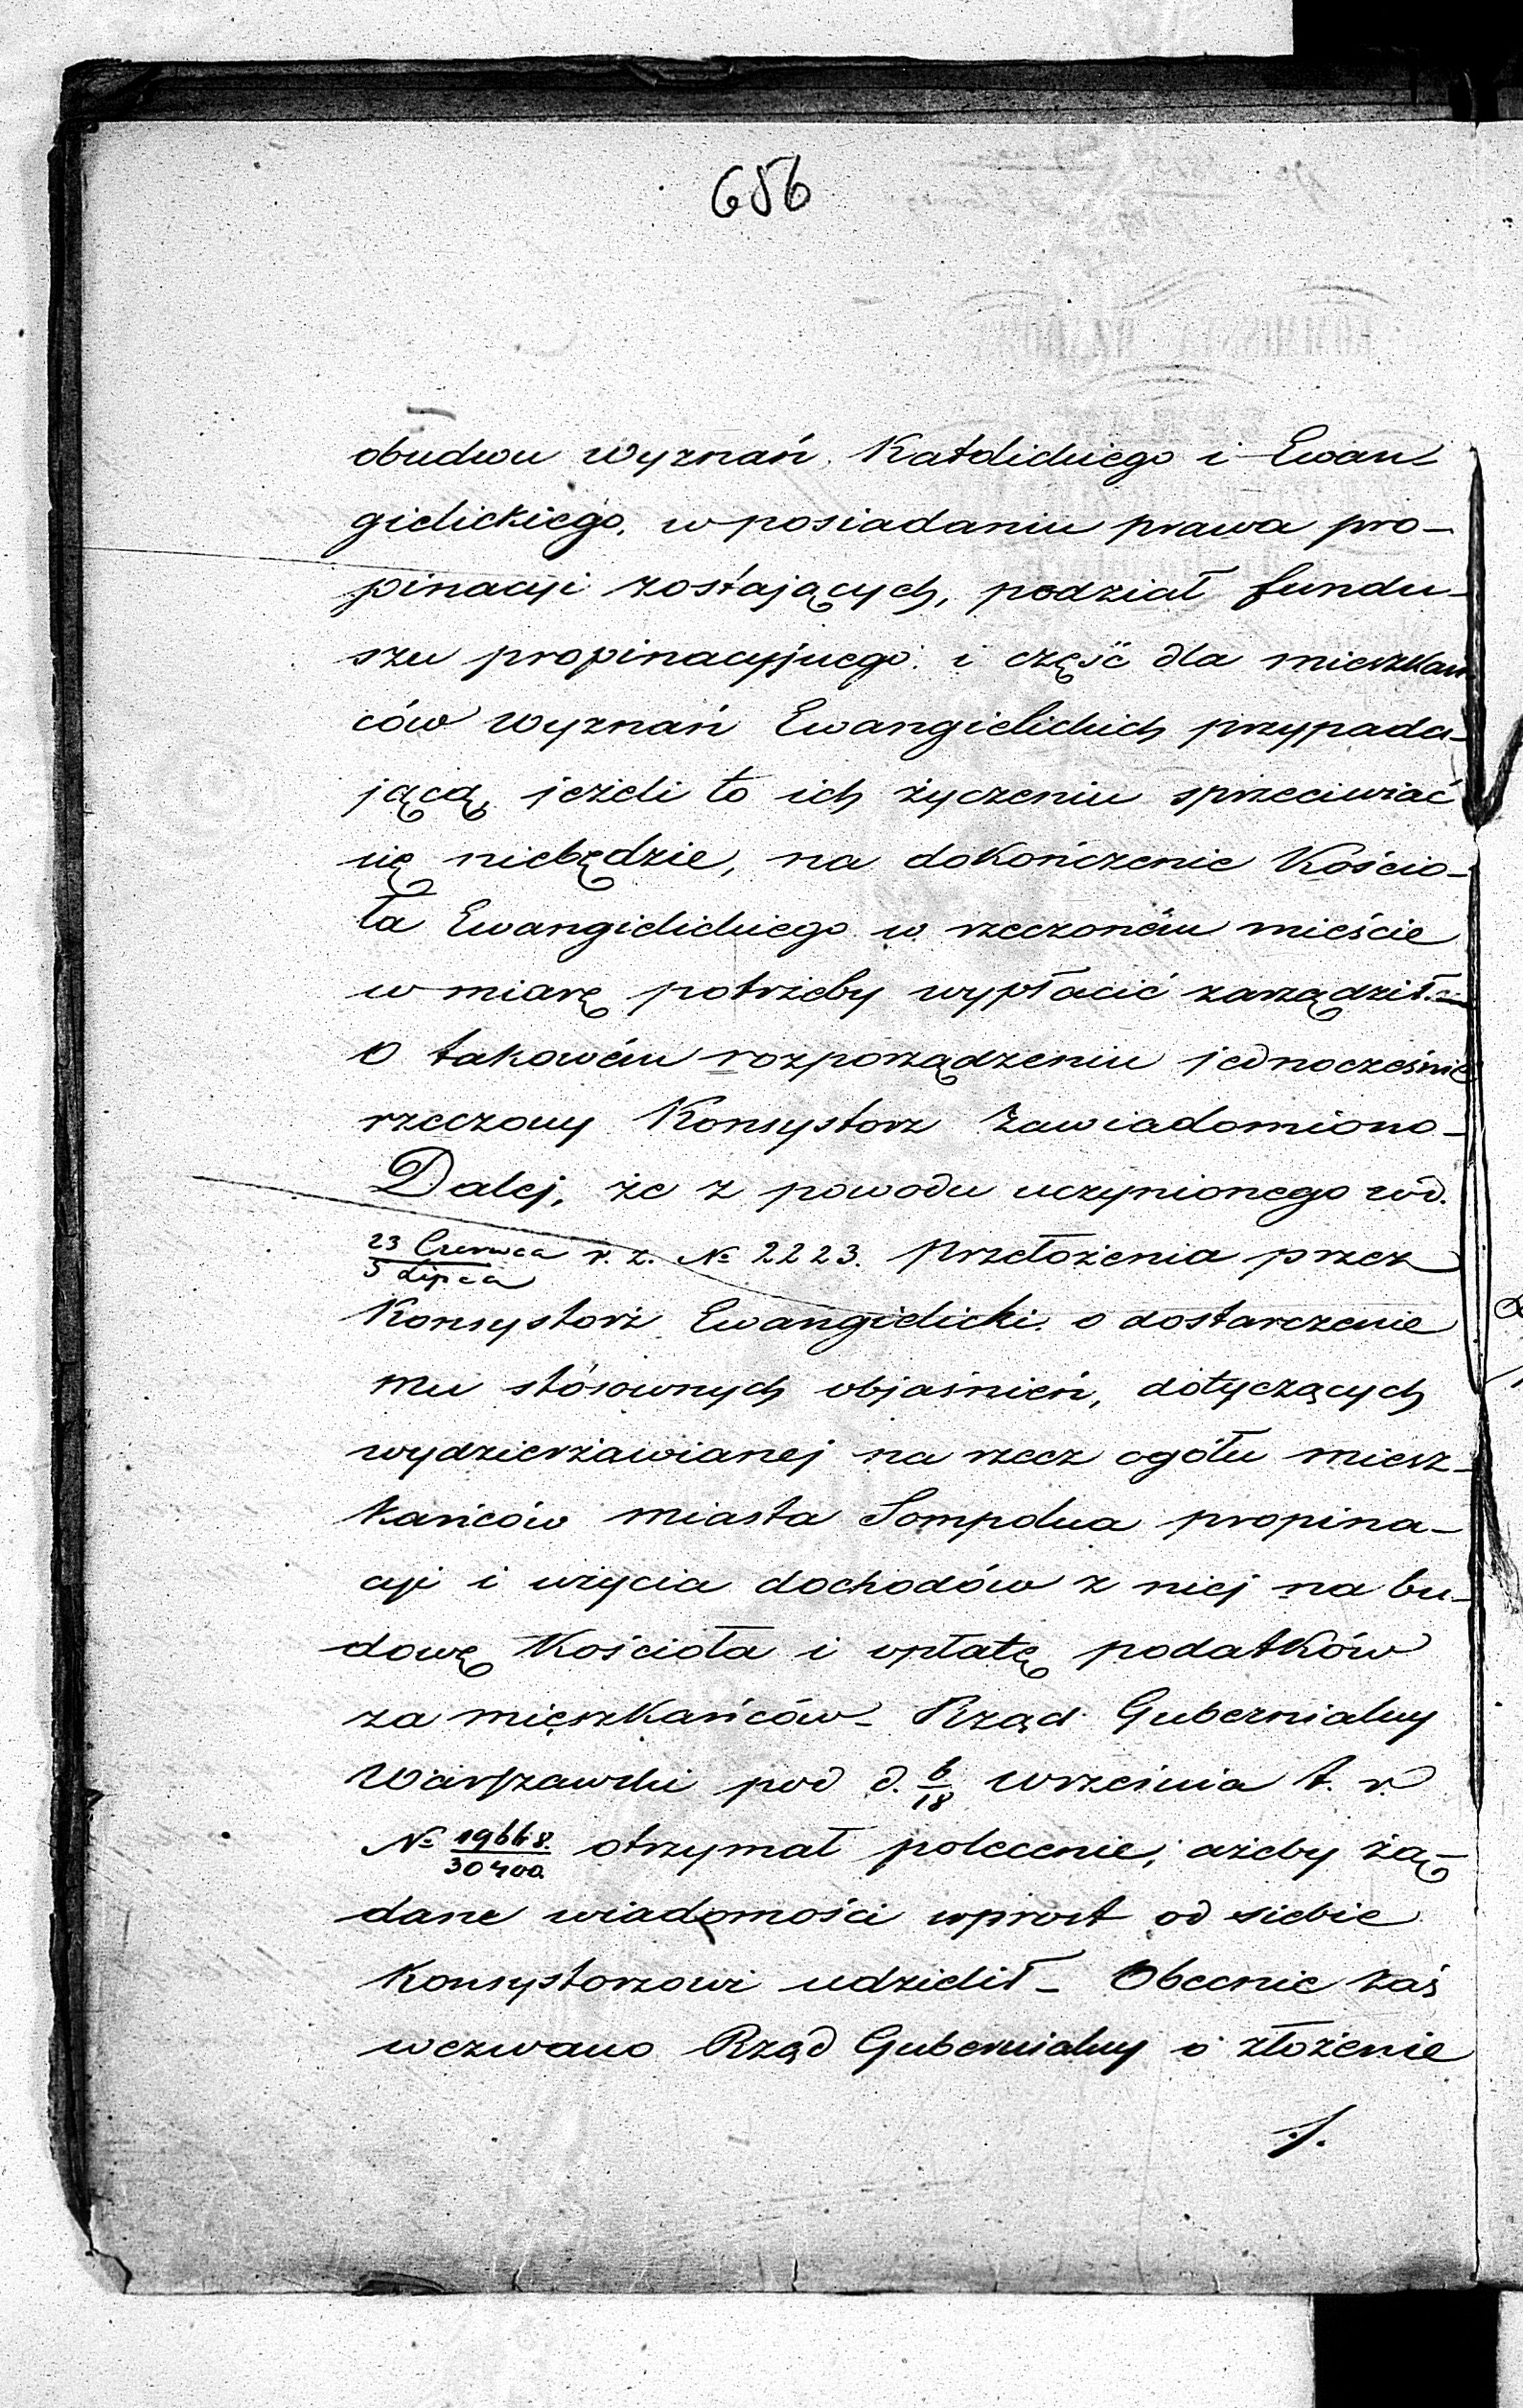 656
obudwu wyznań Katolickiego i Ewan-
gielickiego, w posiadaniu prawa pro-
pinacyi zostających, podział fundu-
szu propinacyjnego i część dla mieszkań
ców wyznań Ewangielickich przypada-
jącą, jeżeli to ich życzeniu sprzeciwiać
się niebędzie, na dokończenie Kościo-
ła Ewangielickiego w rzeczoném mieście
w miarę potrzeby wypłacić zarządził.-
O takowém rozporządzeniu jednocześnie
rzeczony Konsystorz zawiadomiono-
Dalej, że z powodu uczynionego pod d.
23 Czerwca/5 Lipca r. z. No 2223. przełożenia przez
Konsystorz Ewangielicki o dostarczenie
mu stósownych objaśnień, dotyczących
wydzierżawianej na rzecz ogółu miesz-
kańców miasta Sompolna propina-
cyi i użycia dochodów z niej na bu-
dowę Kościoła i opłatę podatków
za mieszkańców- Rząd Gubernialny
Warszawski pod d. 6/18 września t. r.
No 19668./30400. otrzymał polecenie, ażeby żą-
dane wiadomości wprost od siebie
Konsystorzowi udzielił- Obecnie zaś
wezwano Rząd Gubernialny o złożenie
./.